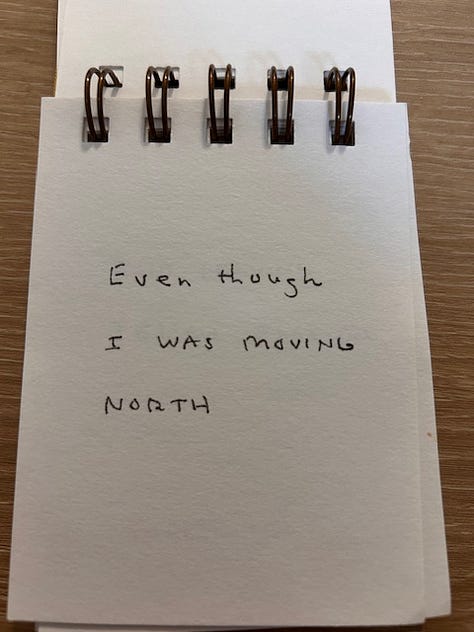 Even though
I WAS MOVING
NORTH